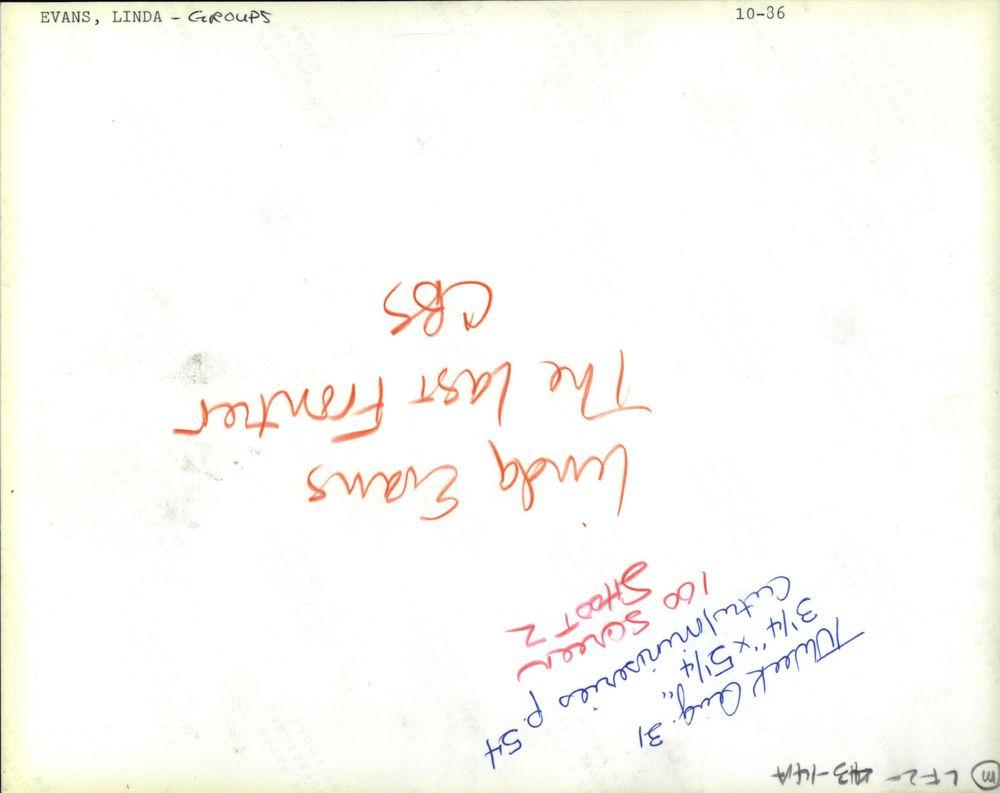 EVANS, LINDA - GROUPS 10-86
Linda Evans
The Last Frontier
CBS
TVWeek Aug. 31
3 1/4" x 5 1/4"
Cutw/miniseries p. 54
100 screen
SHOOT 2